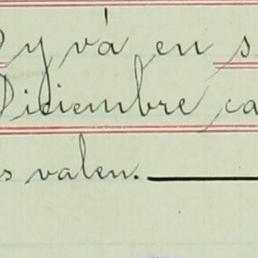 y vá en s
Diciembre ca
s valen.